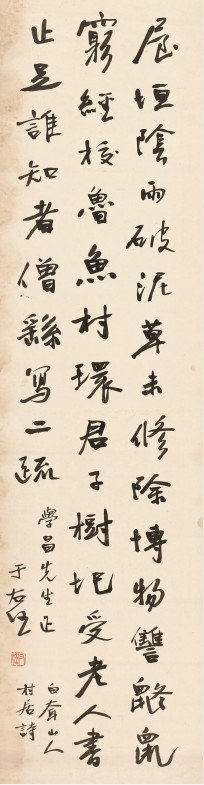 屋垣陰雨破泥草未修除博物讐鼠
窮經校魯魚村環君子樹圯受老人書
止足誰知者僧繇寫二疏
學昌先生正
于右任
白耷山人
村居詩